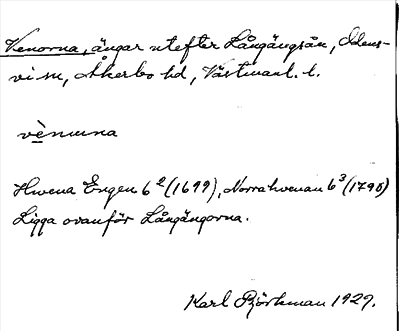 Venorna, ängar utefter Långängsån, Odens-
vi sn, Åkerbo hd, Västmanl. l.
vènuna
Hwena Engen 6² (1699), Norrahvenan 6³ (1790)
Ligga ovanför Långängorna.
Karl Björkman 1929.